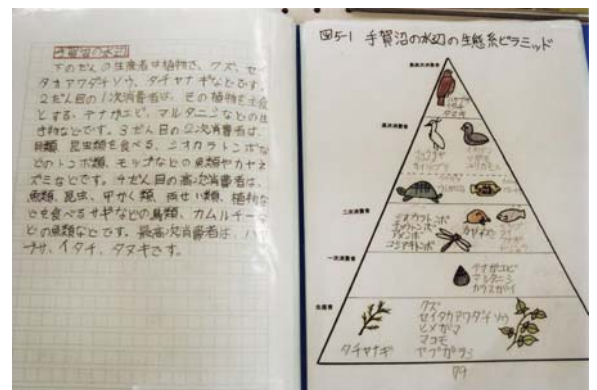 手賀沼の水辺
下のだんの生産者は植物で、クズ、セイ
タカアワダチソウ、タチヤナギなどです。
2だん目の1次消費者は、その植物を主食
とする、テナガエビ、マルタニシなどの生
き物などです。3だん目の2次消費者は、
貝類、昆虫類を食べる、シオカラトンボな
どのトンボ類、モツゴなどの魚類やカヤネ
ズミなどです。4だん目の高次消費者は、
魚類、昆虫、甲かく類、両せい類、植物な
どを食べるサギなどの鳥類、カムルチーな
どの魚類などです。最高次消費者は、ハヤ
ブサ、イタチ、タヌキです。
図5-1 手賀沼の水辺の生態系ピラミッド
最高次消費者
ハヤブサ
イタチ
タヌキ
高次消費者
二次消費者
シオカラトンボ
チョウトンボ
アメンボ
コシアキトンボ
カヤネズミ
一次消費者
テナガエビ
マルタニシ
カラスガイ
生産者
タチヤナギ
クズ
セイタカアワダチソウ
ヒメガマ
マコモ
ヤブガラシ
79